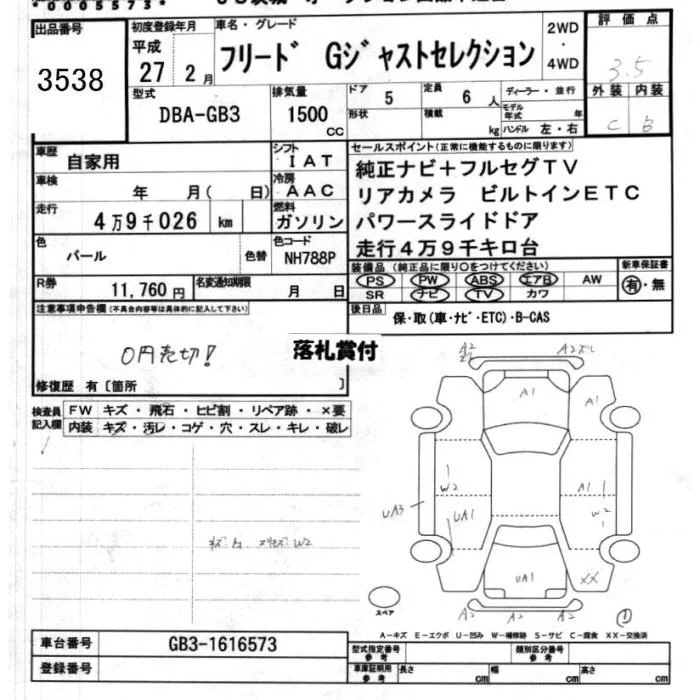 *0005573*
出品番号
3538
初度登録年月
平成
27年 2月
車名・グレード
フリード Gジャストセレクション
2WD
・
4WD
評価点
3.5
外装 内装
C B
型式
DBA-GB3
排気量
1500
CC
ドア
5
形状
定員
6人
積載
kg
ディーラー・並行
モデル年式 年
ハンドル 左・右
車歴
自家用
シフト
IAT
車検
年 月( 日)
冷房
AAC
走行
4万9千026 km
燃料
ガソリン
色
パール
色替
色コード
NH788P
R券
11,760円
名変通知期限
月 日
セールスポイント(正常に機能するものに限ります)
純正ナビ+フルセグTV
リアカメラ ビルトインETC
パワースライドドア
走行4万9千キロ台
装備品(純正品に限り○をつけてください)
PS PW ABS エアB AW
SR ナビ TV カワ
新車保証書
有・無
後日品
保・取(車・ナビ・ETC)・B-CAS
注意事項申告欄(不具合内容等は具体的に記入して下さい)
0円売切!
落札賞付
修復歴 有〔箇所 〕
検査員記入欄
FW キズ・飛石・ヒビ割・リペア跡・×要
内装 キズ・汚レ・コゲ・穴・スレ・キレ・破レ
W2
A2
A2ズレ
A1
A1
W2
A1
W2
UA3
UA1
UA1
XX
A2
A2
A2
①
スペア
A-キズ E-エクボ U-凹み W-補修跡 S-サビ C-腐食 XX-交換済
車台番号
GB3-1616573
登録番号
型式指定番号
参考
類別区分番号
参考
車庫証明用
参考
長さ cm
幅 cm
高さ cm